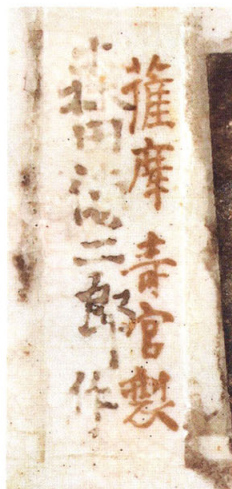 薩摩 青官製
木村徳二郎作